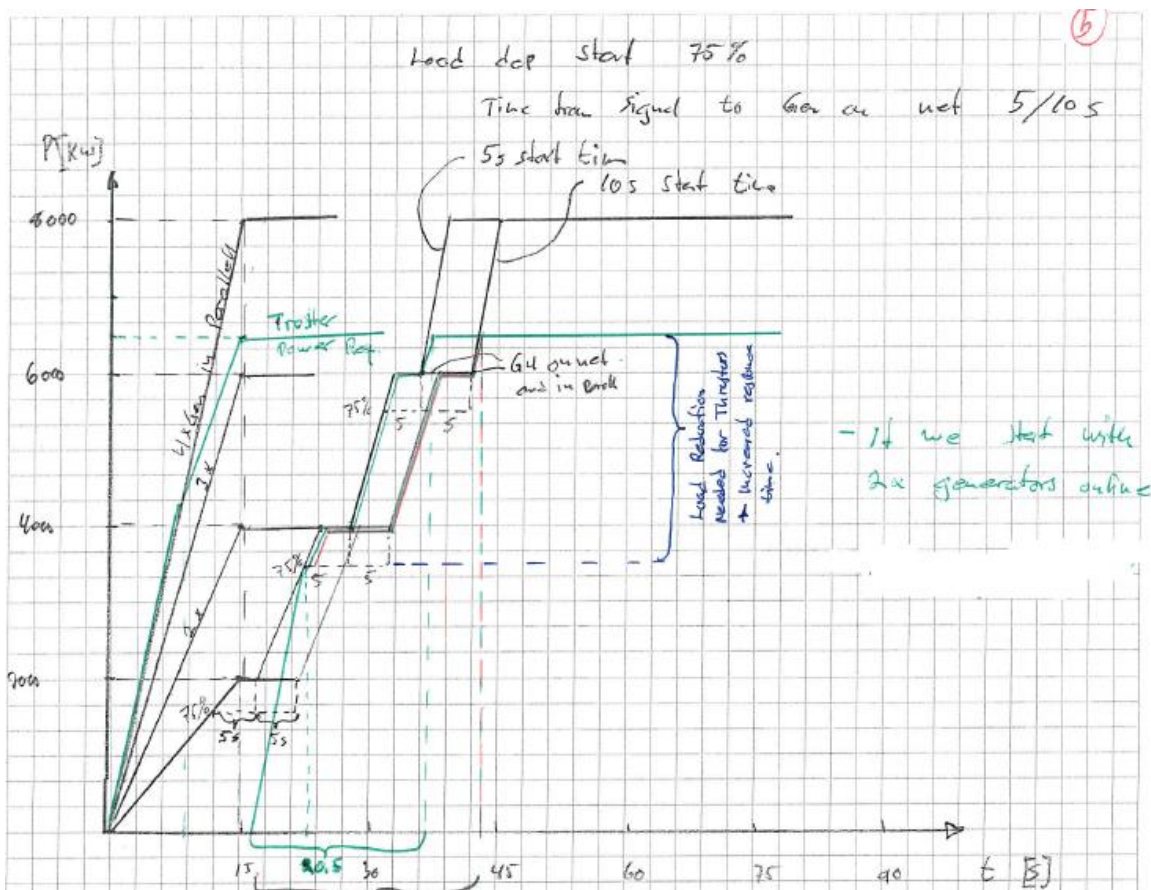 5
Load dep start 75%
Time from signal to Gen on net 5/10s
P[kW]
5s start time
10s start time
8000
4x Gen in Parallell
Truster
Power Ref.
6000
3x
G4 on net
and in
75%
5
5
Load Reduction
Needed for Thrusters
+ Increased response
time.
- If we start with
2x generators online
4000
2x
75%
5
5
2000
75%
5s
5s
20.5
15
30
45
60
75
90
t [s]